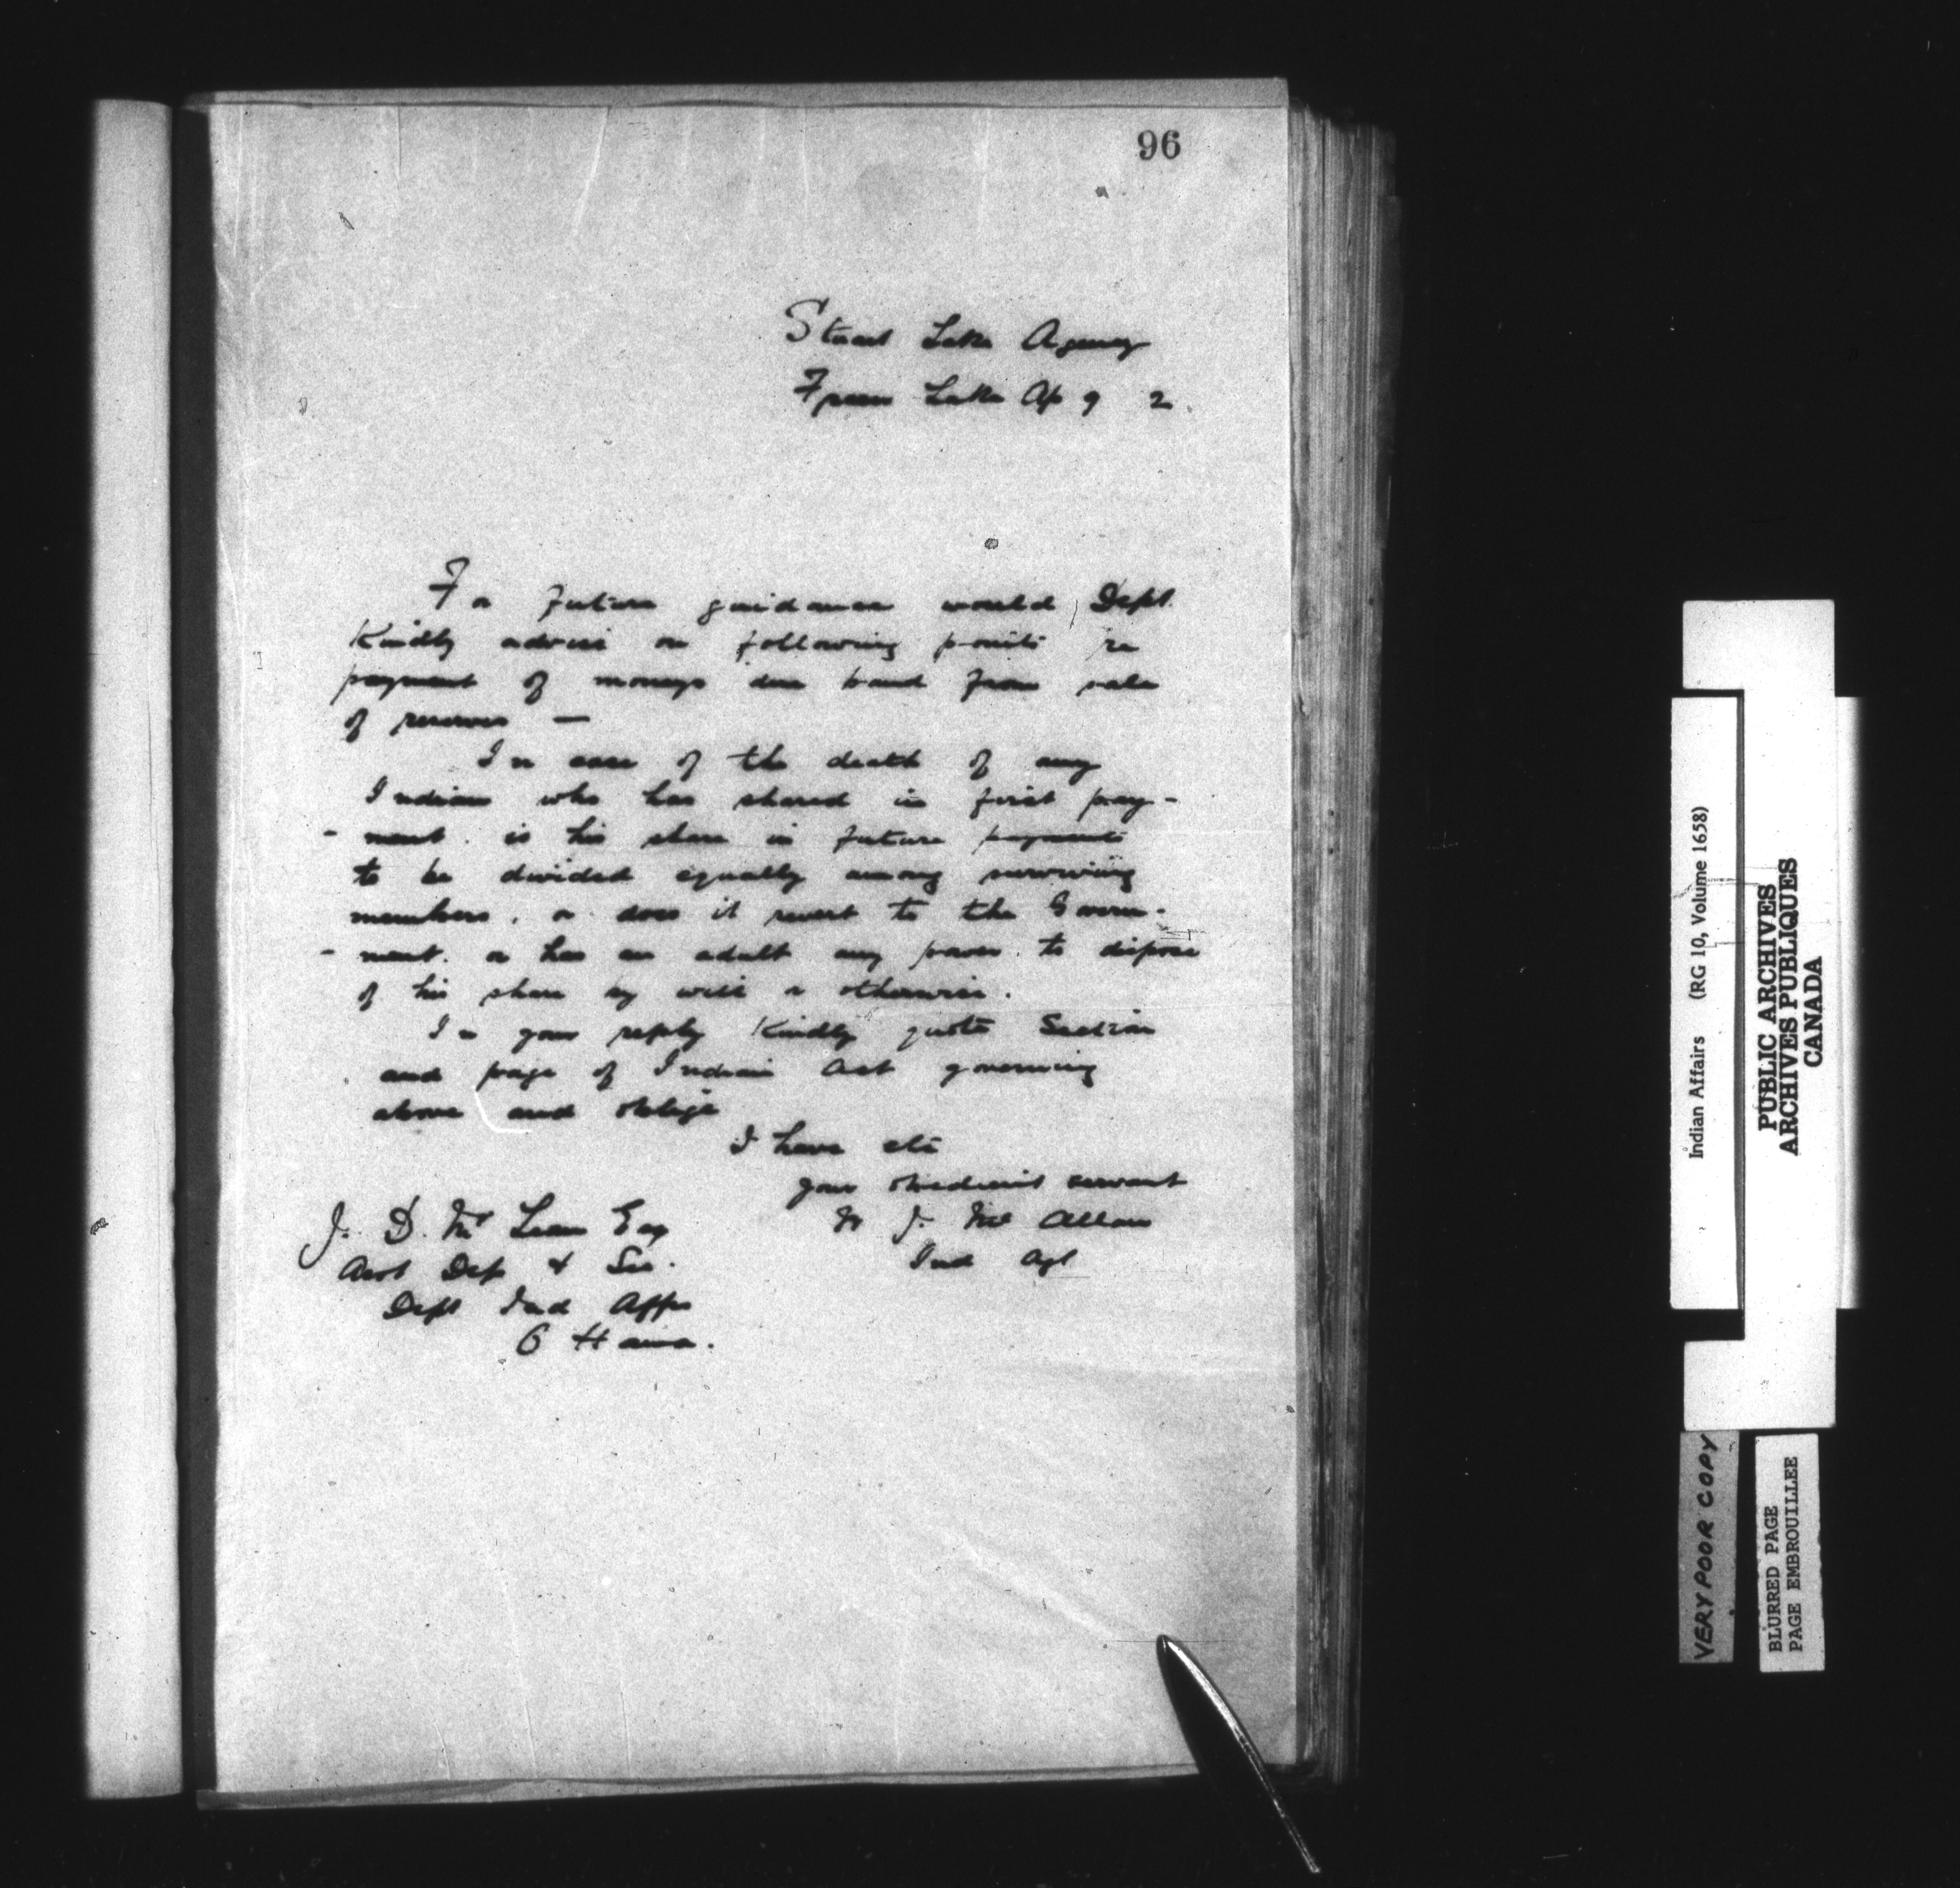 96
Stuart Lake Agency
Fraser Lake Ap 9 2.
For future guidance would Dept.
Kindly advise on following points re
payment of moneys due band from sale
of reserves —
In case of the death of any
Indian who has shared in first pay-
- ment. is his share in future payments
to be divided equally among surviving
members. or does it revert to the Govern-
- ment. or has an adult any power to dispose
of his share by will or otherwise.
In your reply Kindly quote Section
and page of Indian Act governing
above and oblige
I have etc
your obedient servant
W J. McAllan
Ind Agt
J. D. McLean Esq
Asst Dep & Sec.
Dept Ind Affrs
Ottawa.
Indian Affairs (RG 10, Volume 1658)
PUBLIC ARCHIVES
ARCHIVES PUBLIQUES
CANADA
VERY POOR COPY
BLURRED PAGE
PAGE EMBROUILLEE